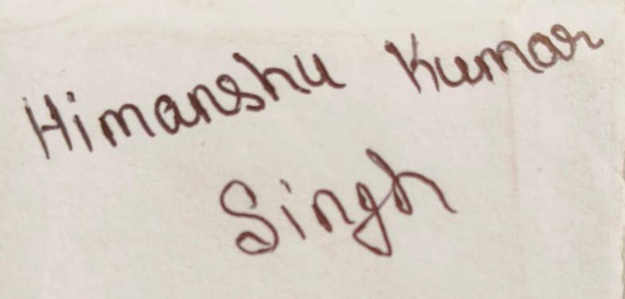 Himanshu Kumar
Singh